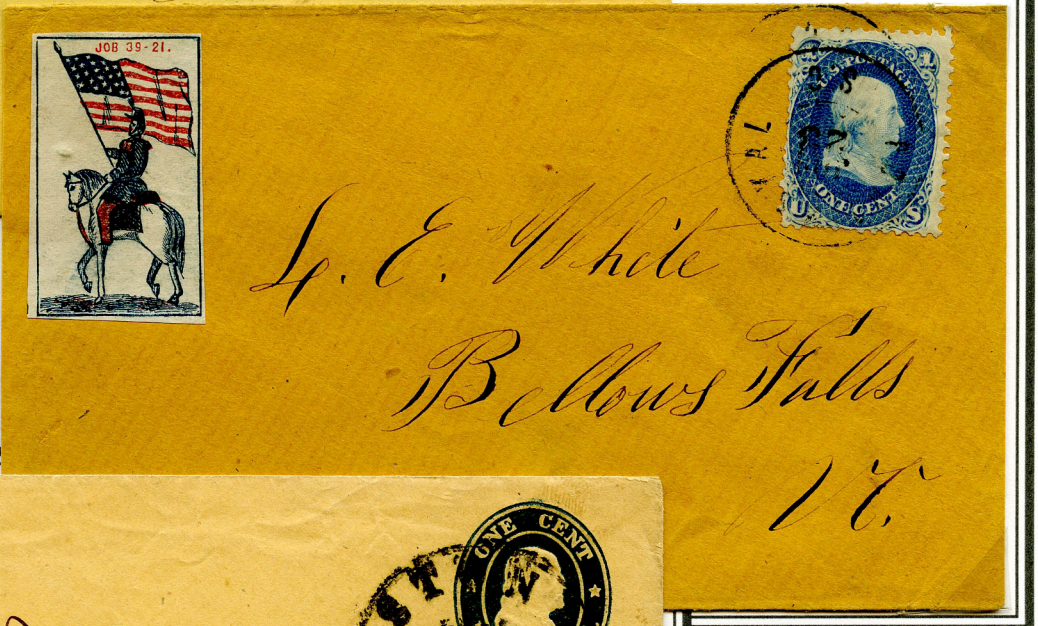 JOB 39-21.
U.S. POSTAGE
ONE CENT
U S
L. E. White
Bellows Falls
Vt.
ONE CENT